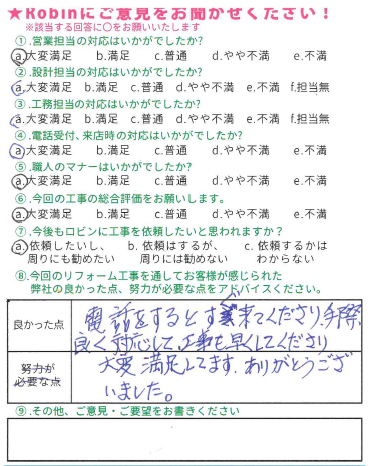 ★Robinにご意見をお聞かせください！
※該当する回答に〇をお願いいたします
①.営業担当の対応はいかがでしたか?
a.大変満足 b.満足 c.普通 d.やや不満 e.不満
②.設計担当の対応はいかがでしたか?
a.大変満足 b.満足 c.普通 d.やや不満 e.不満 f.担当無
③.工務担当の対応はいかがでしたか?
a.大変満足 b.満足 c.普通 d.やや不満 e.不満 f.担当無
④.電話受付、来店時の対応はいかがでしたか?
a.大変満足 b.満足 c.普通 d.やや不満 e.不満
⑤.職人のマナーはいかがでしたか?
a.大変満足 b.満足 c.普通 d.やや不満 e.不満
⑥.今回の工事の総合評価をお願いします。
a.大変満足 b.満足 c.普通 d.やや不満 e.不満
⑦.今後もロビンに工事を依頼したいと思われますか？
a.依頼したいし、 b. 依頼はするが、 c. 依頼するかは
周りにも勧めたい 周りには勧めない わからない
⑧.今回のリフォーム工事を通してお客様が感じられた
弊社の良かった点、努力が必要な点をアドバイスください。
良かった点
電話をするとすぐ来てくださり、手際
良く対応して、工事も早くしてくださり
努力が
必要な点
大変満足してます。ありがとうござ
いました。
⑨.その他、ご意見・ご要望をお書きください